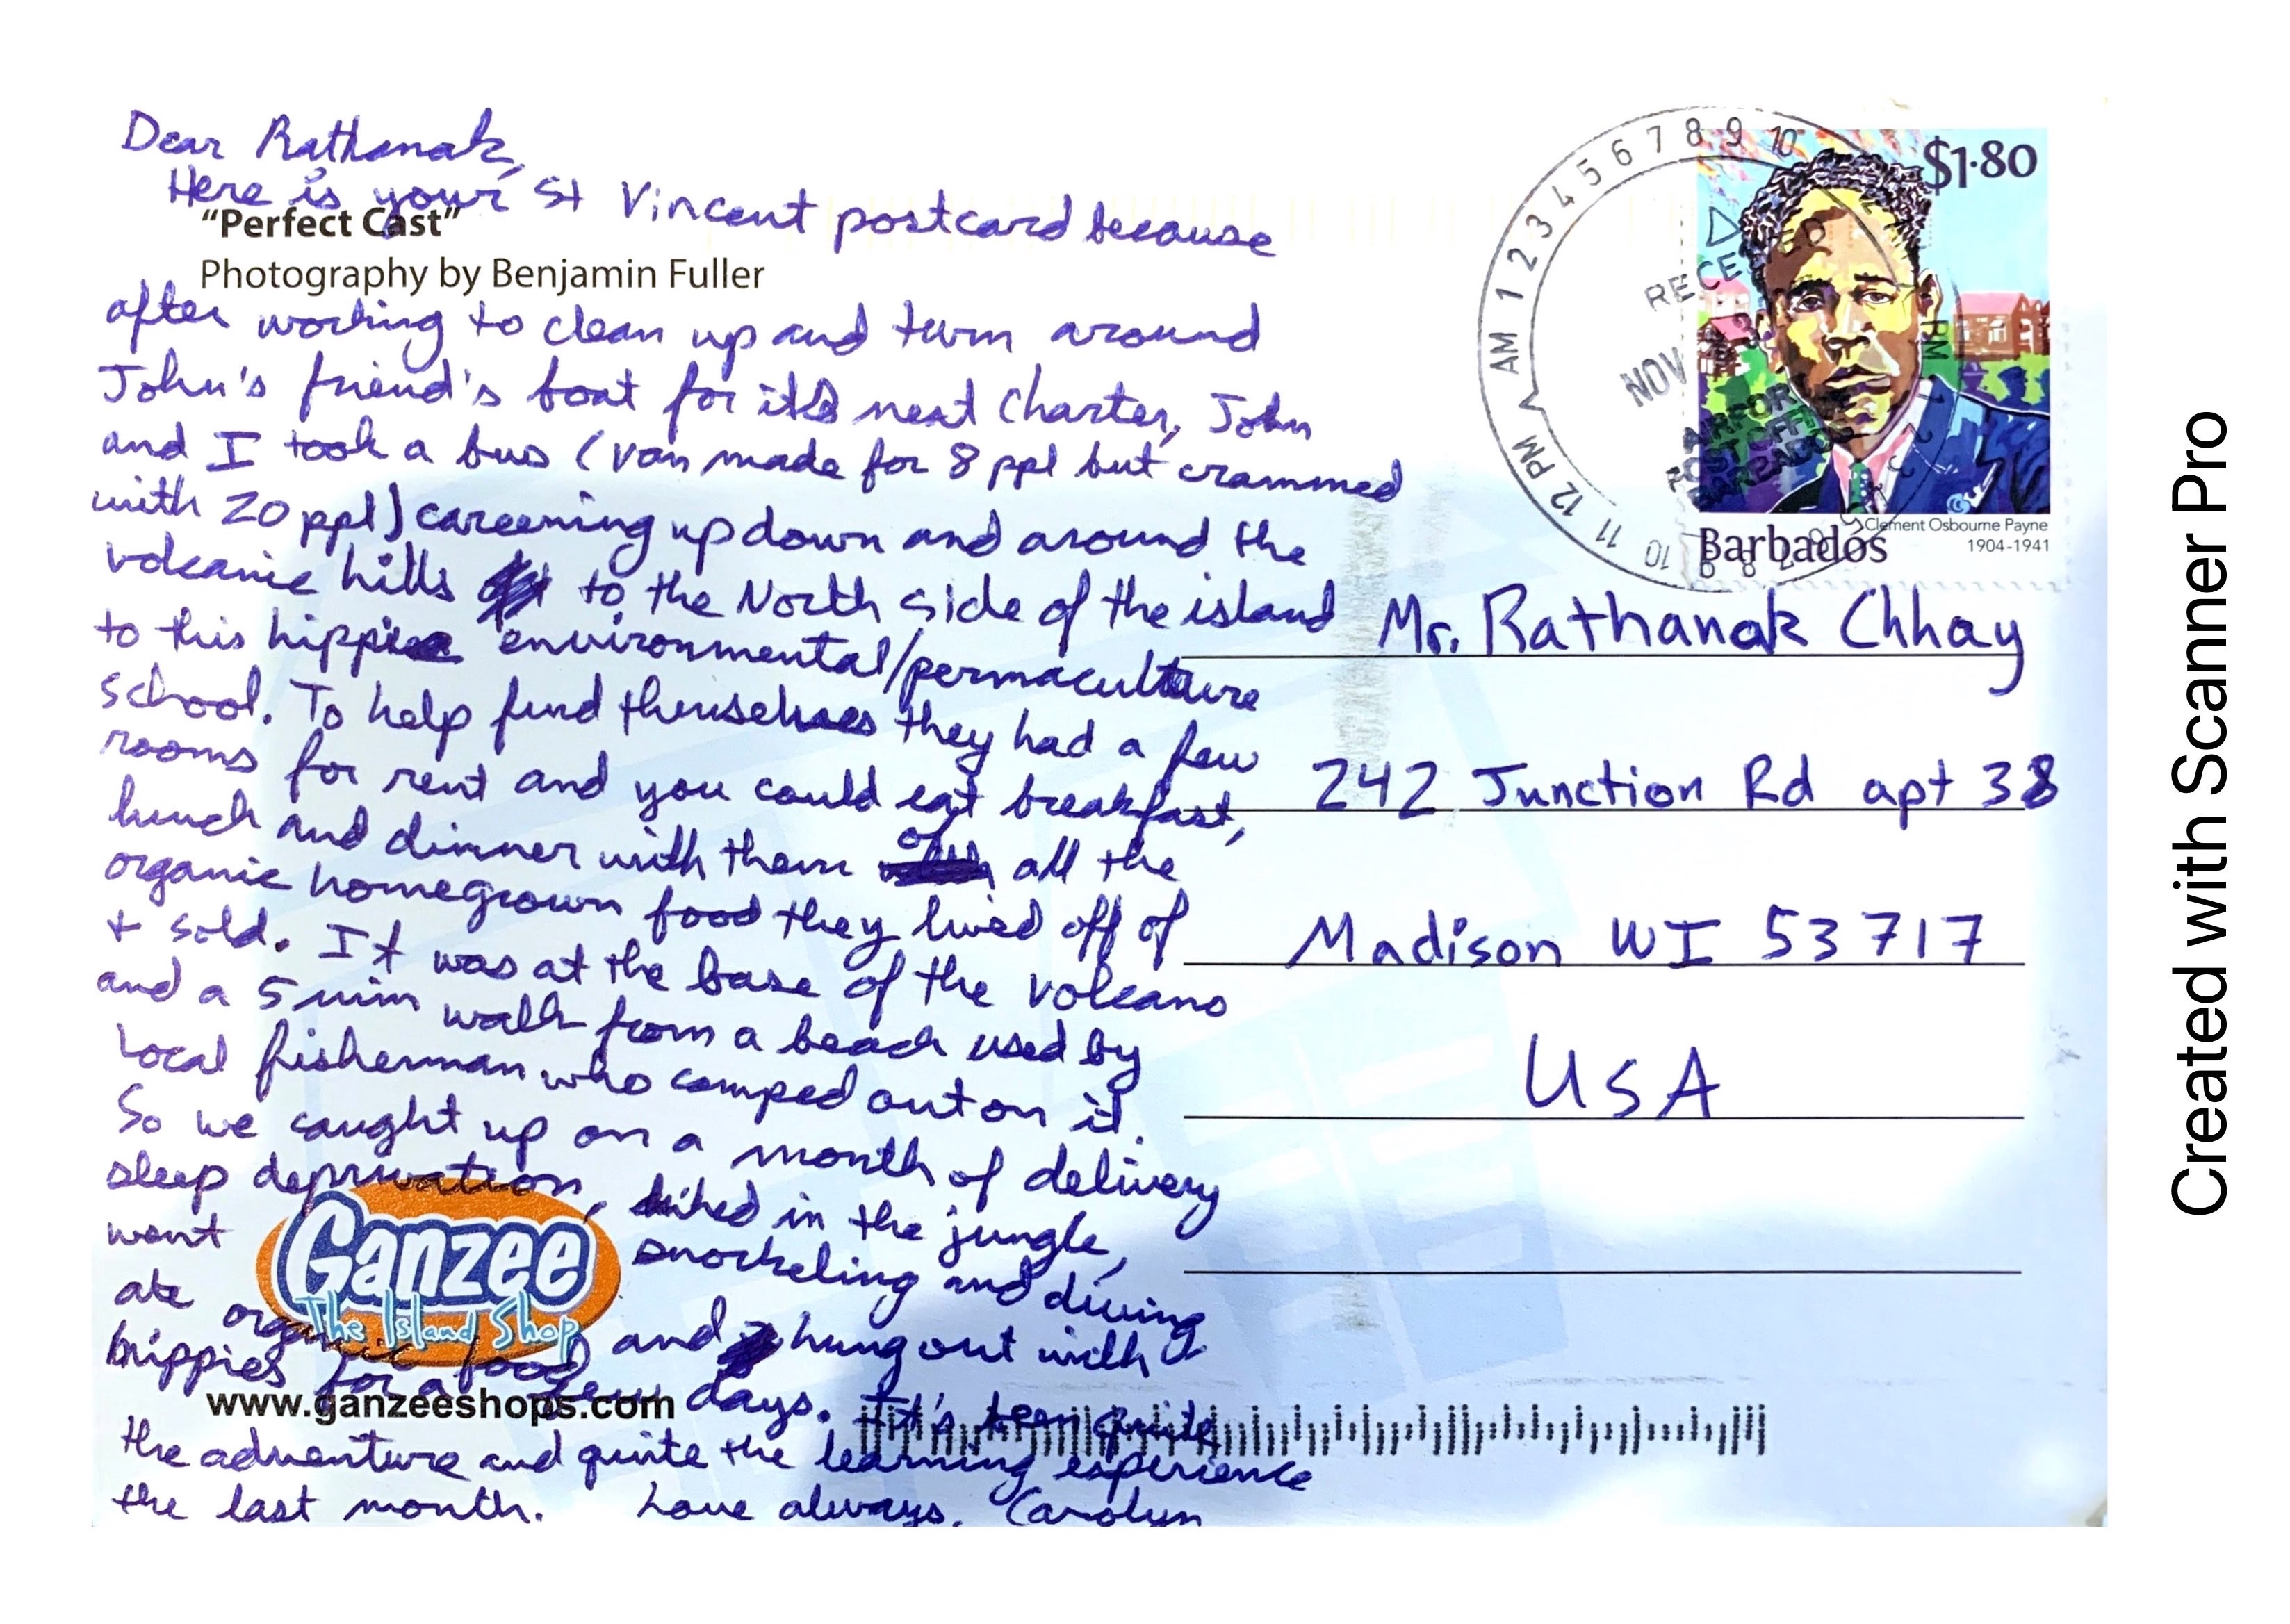 Dear Rathanak,
Here is your St Vincent postcard because
"Perfect Cast"
Photography by Benjamin Fuller
after working to clean up and turn around
John's friend's boat for its next charter, John
and I took a bus (van made for 8 ppl but crammed
with 20 ppl) careening up down and around the
volcanic hills to the North side of the island
to this hippie environmental/permaculture
school. To help fund themselves they had a few
rooms for rent and you could eat breakfast,
lunch and dinner with them of all the
organic homegrown food they lived off of
+ sold. It was at the base of the volcano
and a 5 min walk from a beach used by
local fisherman who camped out on it.
So we caught up on a month of delivery
sleep deprivation, hiked in the jungle,
went snorkeling and diving
ate organic food and hung out with
hippies for a few days. It's been quite
the adventure and quite the learning experience
the last month. Love always, Carolyn
Ganzee
The Island Shop
www.ganzeeshops.com
$1.80
Clement Osbourne Payne
1904-1941
Barbados
AM 1 2 3 4 5 6 7 8 9 10
12 PM
11
10
RECEIVED
NOV
POST OFFICE
BARBADOS
Mr. Rathanak Chhay
242 Junction Rd apt 38
Madison WI 53717
USA
Created with Scanner Pro